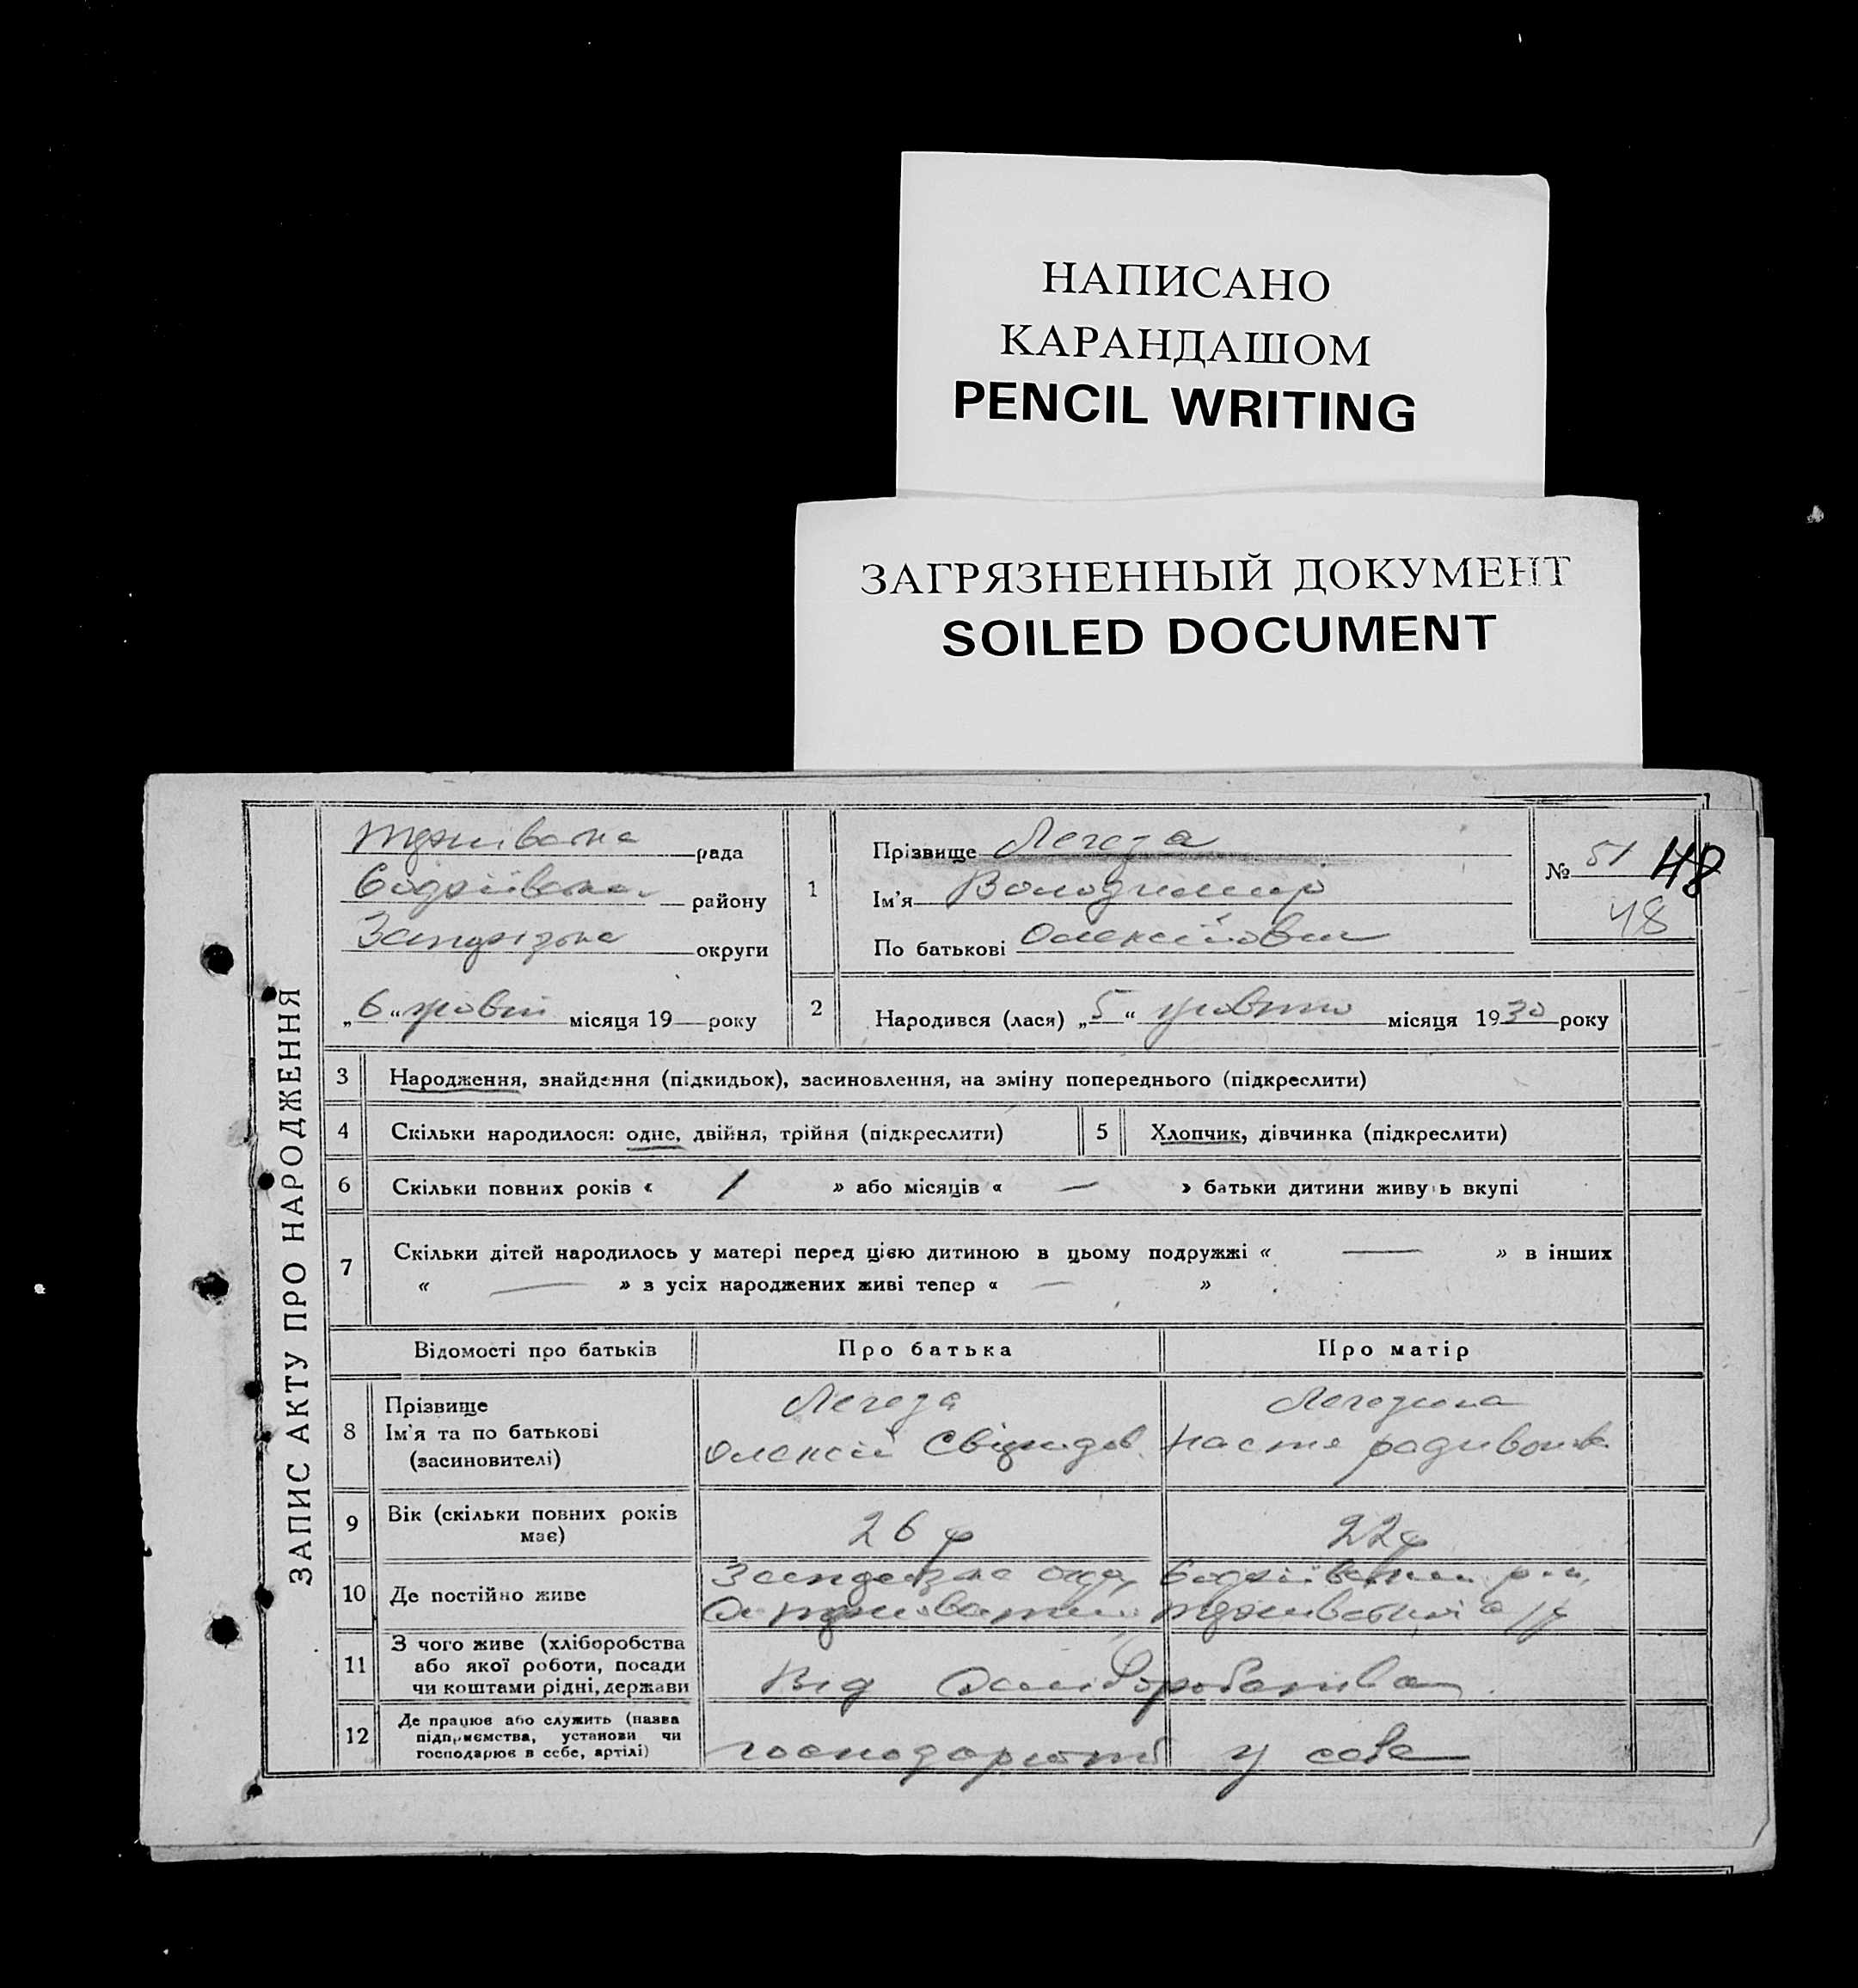 НАПИСАНО
КАРАНДАШОМ
PENCIL WRITING
ЗАГРЯЗНЕННЫЙ ДОКУМЕНТ
SOILED DOCUMENT
ЗАПИС АКТУ ПРО НАРОДЖЕННЯ
рада
району
округи
„6“ жовтн місяця 19 року
1
Прізвище Легеза
Ім'я Володимир
По батькові Олексійович
№ 51 48
48
2
Народився (лася) „5“ жовтня місяця 1930 року
3 Народження, знайдення (підкидьок), засиновлення, на зміну попереднього (підкреслити)
4 Скільки народилося: одне, двійня, трійня (підкреслити)
5 Хлопчик, дівчинка (підкреслити)
6 Скільки повних років « 1 » або місяців « — » батьки дитини живуть вкупі
7 Скільки дітей народилось у матері перед цією дитиною в цьому подружжі « — » в інших
« — » з усіх народжених живі тепер « — »
Відомості про батьків Про батька Про матір
8 Прізвище
Ім'я та по батькові
(засиновителі)
Легеза
Олексій
Настя
9 Вік (скільки повних років
має)
26 р
22 р
10 Де постійно живе
11 З чого живе (хліборобства
або якої роботи, посади
чи коштами рідні, держави
Від
12 Де працює або служить (назва
підприємства, установи чи
господарює в себе, артілі)
господарюють у себе